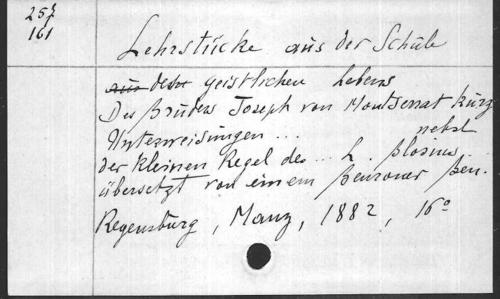 257
161
Lehrstücke aus der Schule
aus dem geistlichen Lebens
Des Bruders Joseph von Montserrat kurz
Unterweisungen ... nebst
der kleinen Regel des ... L. Blosius
übersetzt von einem Beuroner Ben.
Regensburg, Manz, 1882, 16°